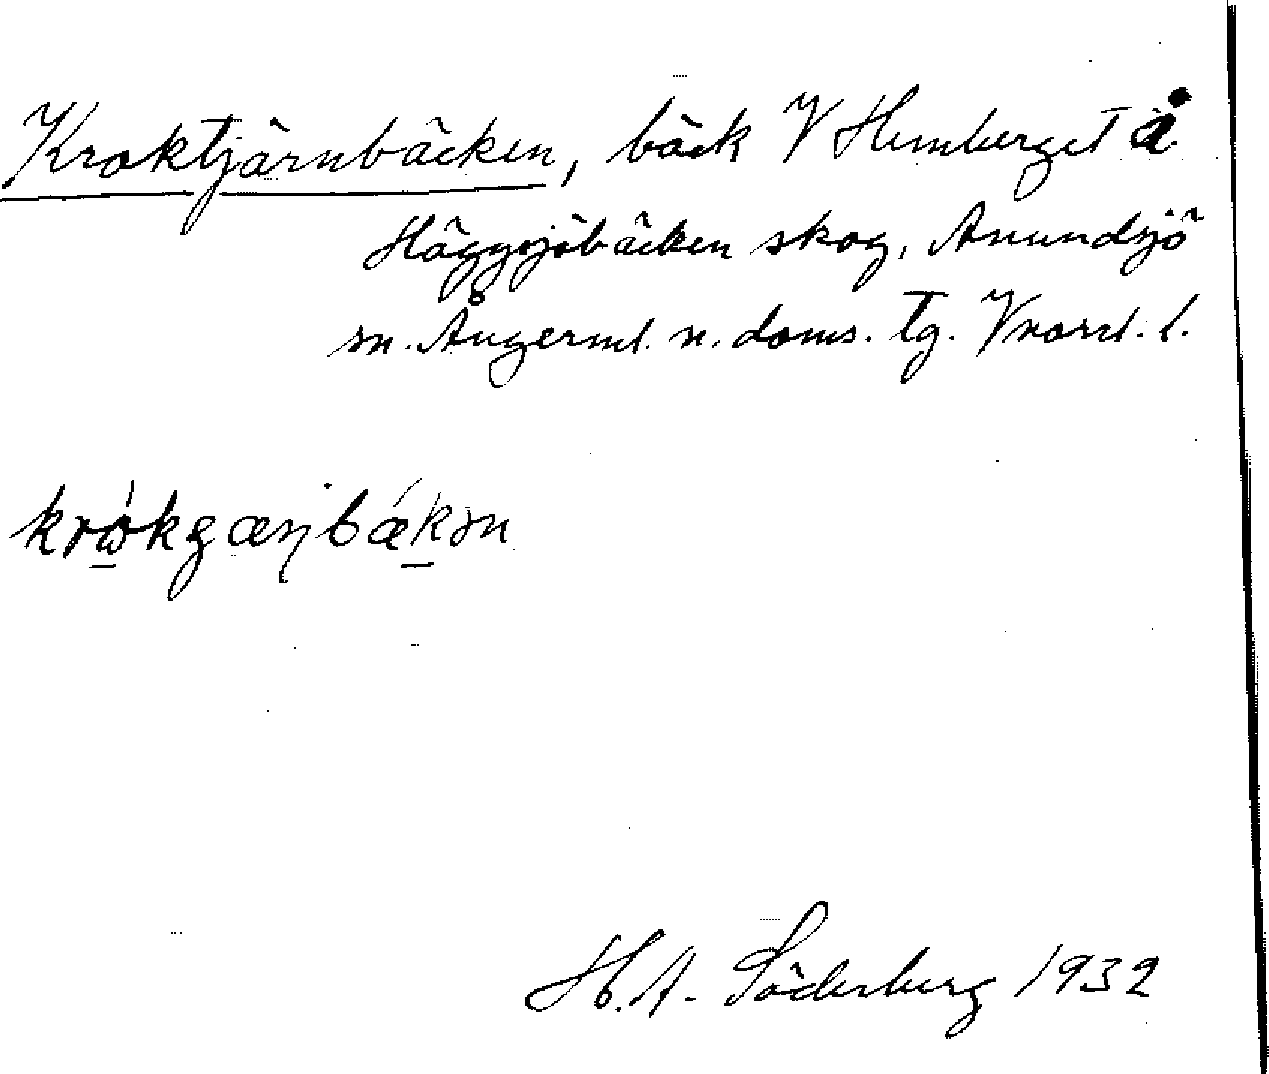 Kroktjärnbäcken, bäck V Hemberget å
Häggsjöbäcken skog, Anundsjö
sn. Ångerml. n. doms. tg. Vnorrl. l.
H. A. Söderberg 1932